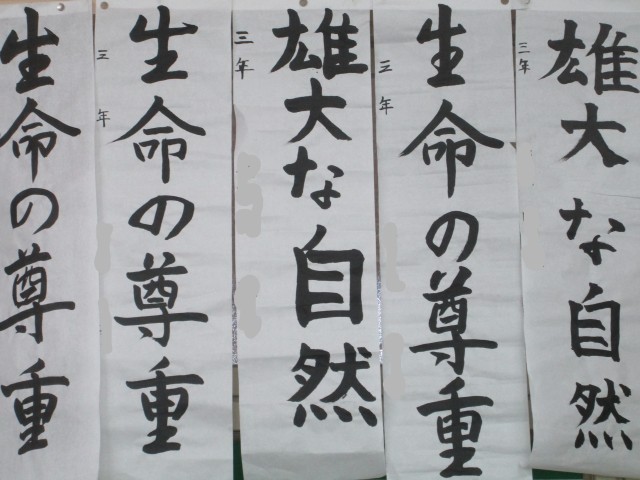 雄大な自然
三年
生命の尊重
三年
雄大な自然
三年
生命の尊重
三年
生命の尊重